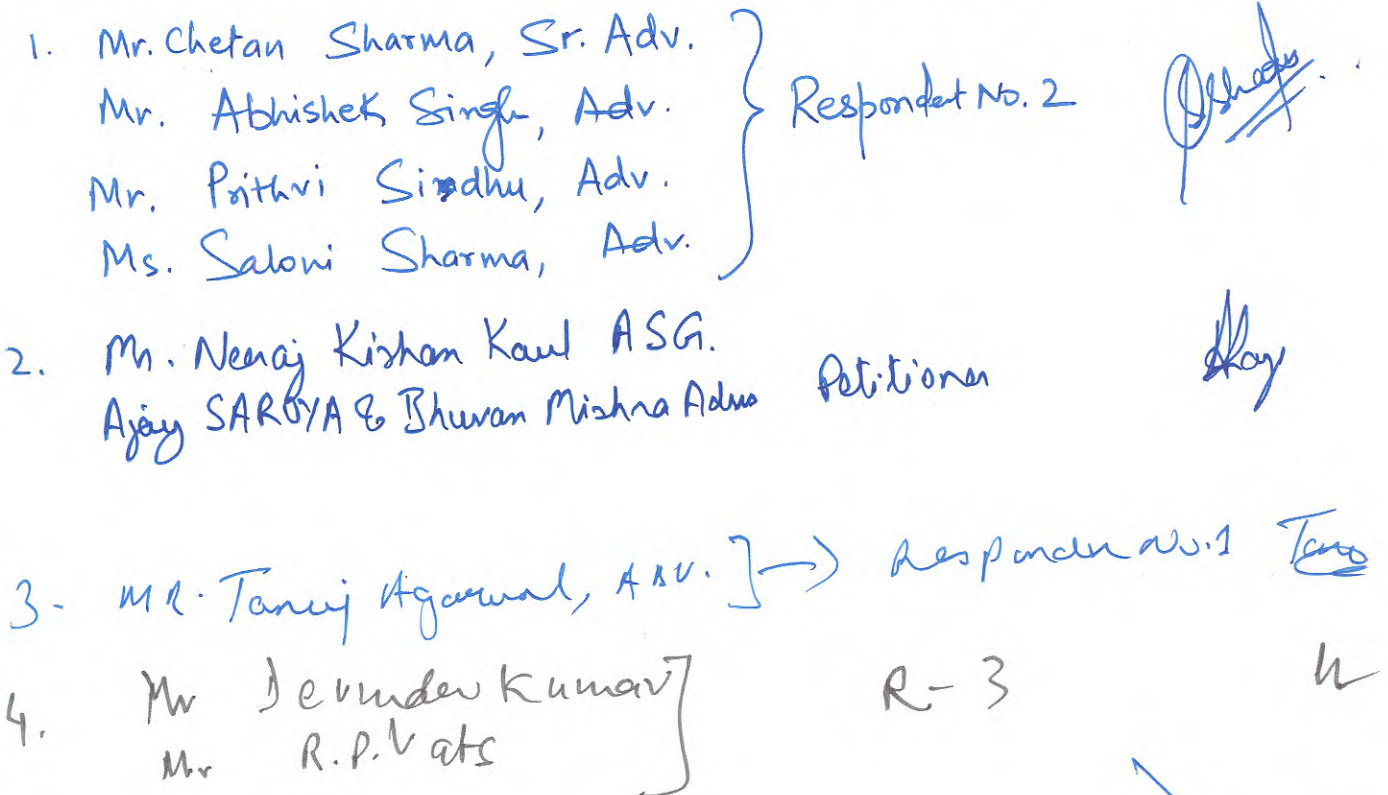 1. Mr. Chetan Sharma, Sr. Adv.
Mr. Abhishek Singh, Adv.
Mr. Prithvi Sindhu, Adv.
Ms. Saloni Sharma, Adv.
Respondent No. 2
2. Mr. Neeraj Kishan Kaul ASG.
Ajay SAROYA & Bhuvan Mishra Advs Petitioner
3- MR. Tanuj Agarwal, ADV. ] → Respondent No.1
4. Mr Devinder Kumar
Mr R.P. Vats
R-3